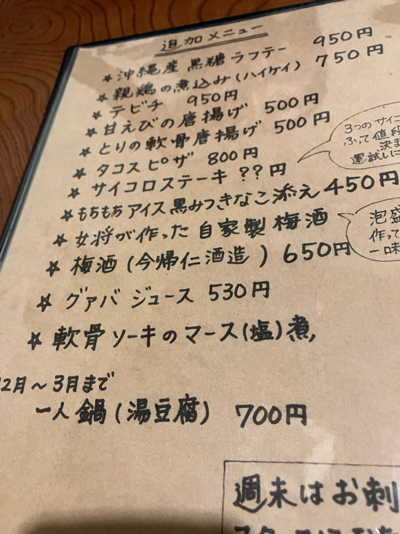 追加メニュー
★沖縄産 黒糖ラフテー 950円
★親鶏の煮込み(ハイケイ) 750円
★テビチ 950円
★甘えびの唐揚げ 500円
★とりの軟骨唐揚げ 500円
★タコスピザ 800円
★サイコロステーキ ??円
3つのサイコ
ふって値段
決ま
運試しに
★もちもちアイス黒みつきなこ添え 450円
★女将が作った自家製梅酒
泡盛
作って
一味
★梅酒(今帰仁酒造) 650円
★グァバジュース 530円
★軟骨ソーキのマース(塩)煮,
12月〜3月まで
一人鍋(湯豆腐) 700円
週末はお刺